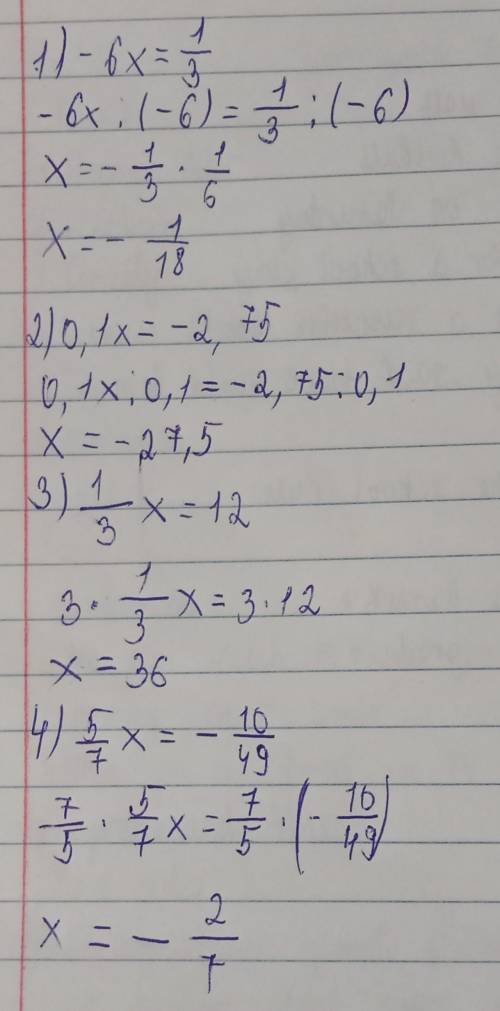 1) - 6x = 1/3
- 6x : (-6) = 1/3 : (-6)
x = - 1/3 · 1/6
x = - 1/18
2) 0,1x = -2,75
0,1x : 0,1 = -2,75 : 0,1
x = -27,5
3) 1/3 x = 12
3 · 1/3 x = 3 · 12
x = 36
4) 5/7 x = - 10/49
7/5 · 5/7 x = 7/5 · (- 10/49)
x = - 2/7